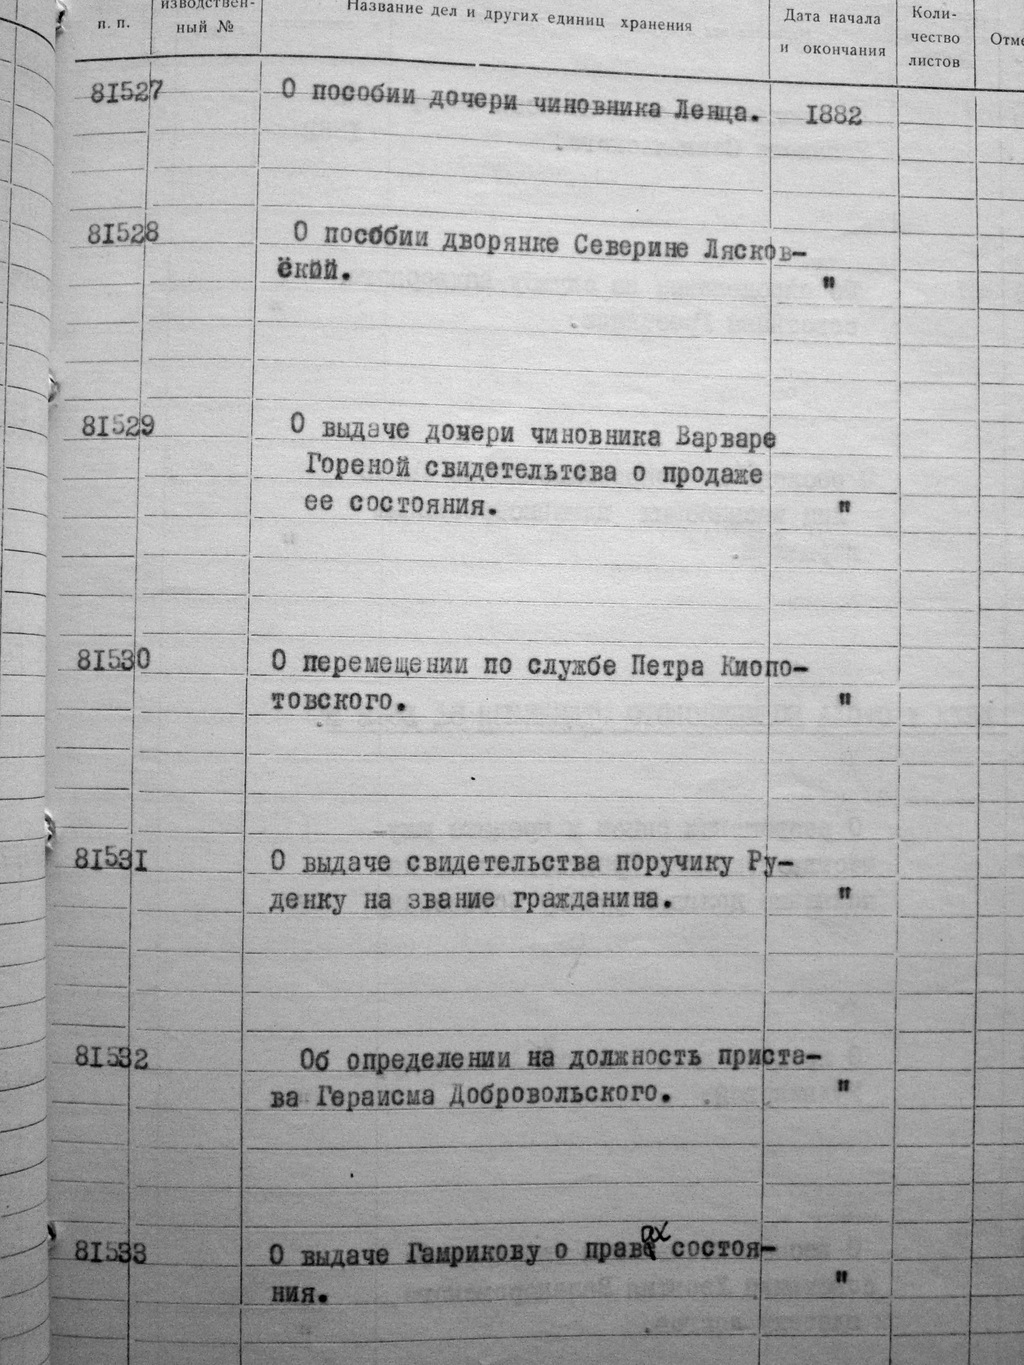 п. п.
изводствен-
ный №
Название дел и других единиц хранения
Дата начала
и окончания
Коли-
чество
листов
Отме
81527 О пособии дочери чиновника Ленца. 1882
81528 О пособии дворянке Северине Лясков-
ской. "
81529 О выдаче дочери чиновника Варваре
Гореной свидетельтсва о продаже
ее состояния. "
81530 О перемещении по службе Петра Киопо-
товского. "
81531 О выдаче свидетельства поручику Ру-
денку на звание гражданина. "
81532 Об определении на должность приста-
ва Гераисма Добровольского. "
81533 О выдаче Гамрикову о правах состоя-
ния. "